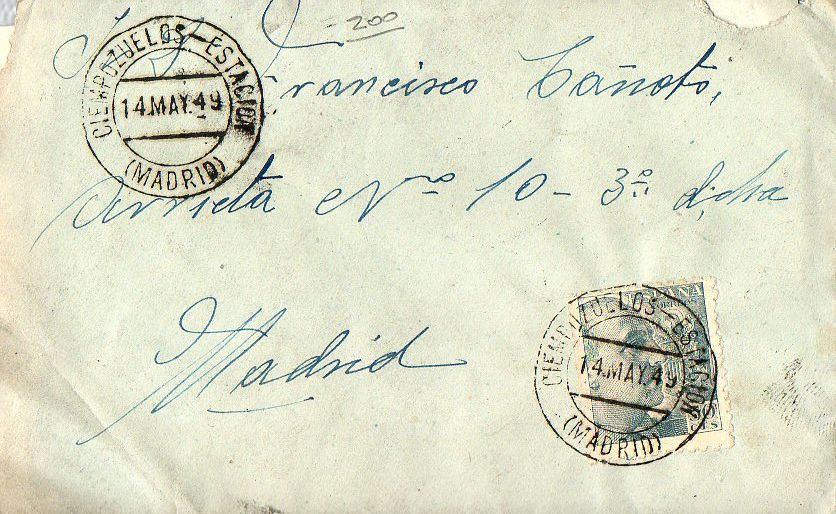 200
CIEMPOZUELOS-ESTACION
14.MAY.49
(MADRID)
Francisco Cañoto,
Arrieta Nº 10-3º dcha
Madrid
ESPAÑA
CORREOS
CIEMPOZUELOS-ESTACION
14.MAY.49
(MADRID)